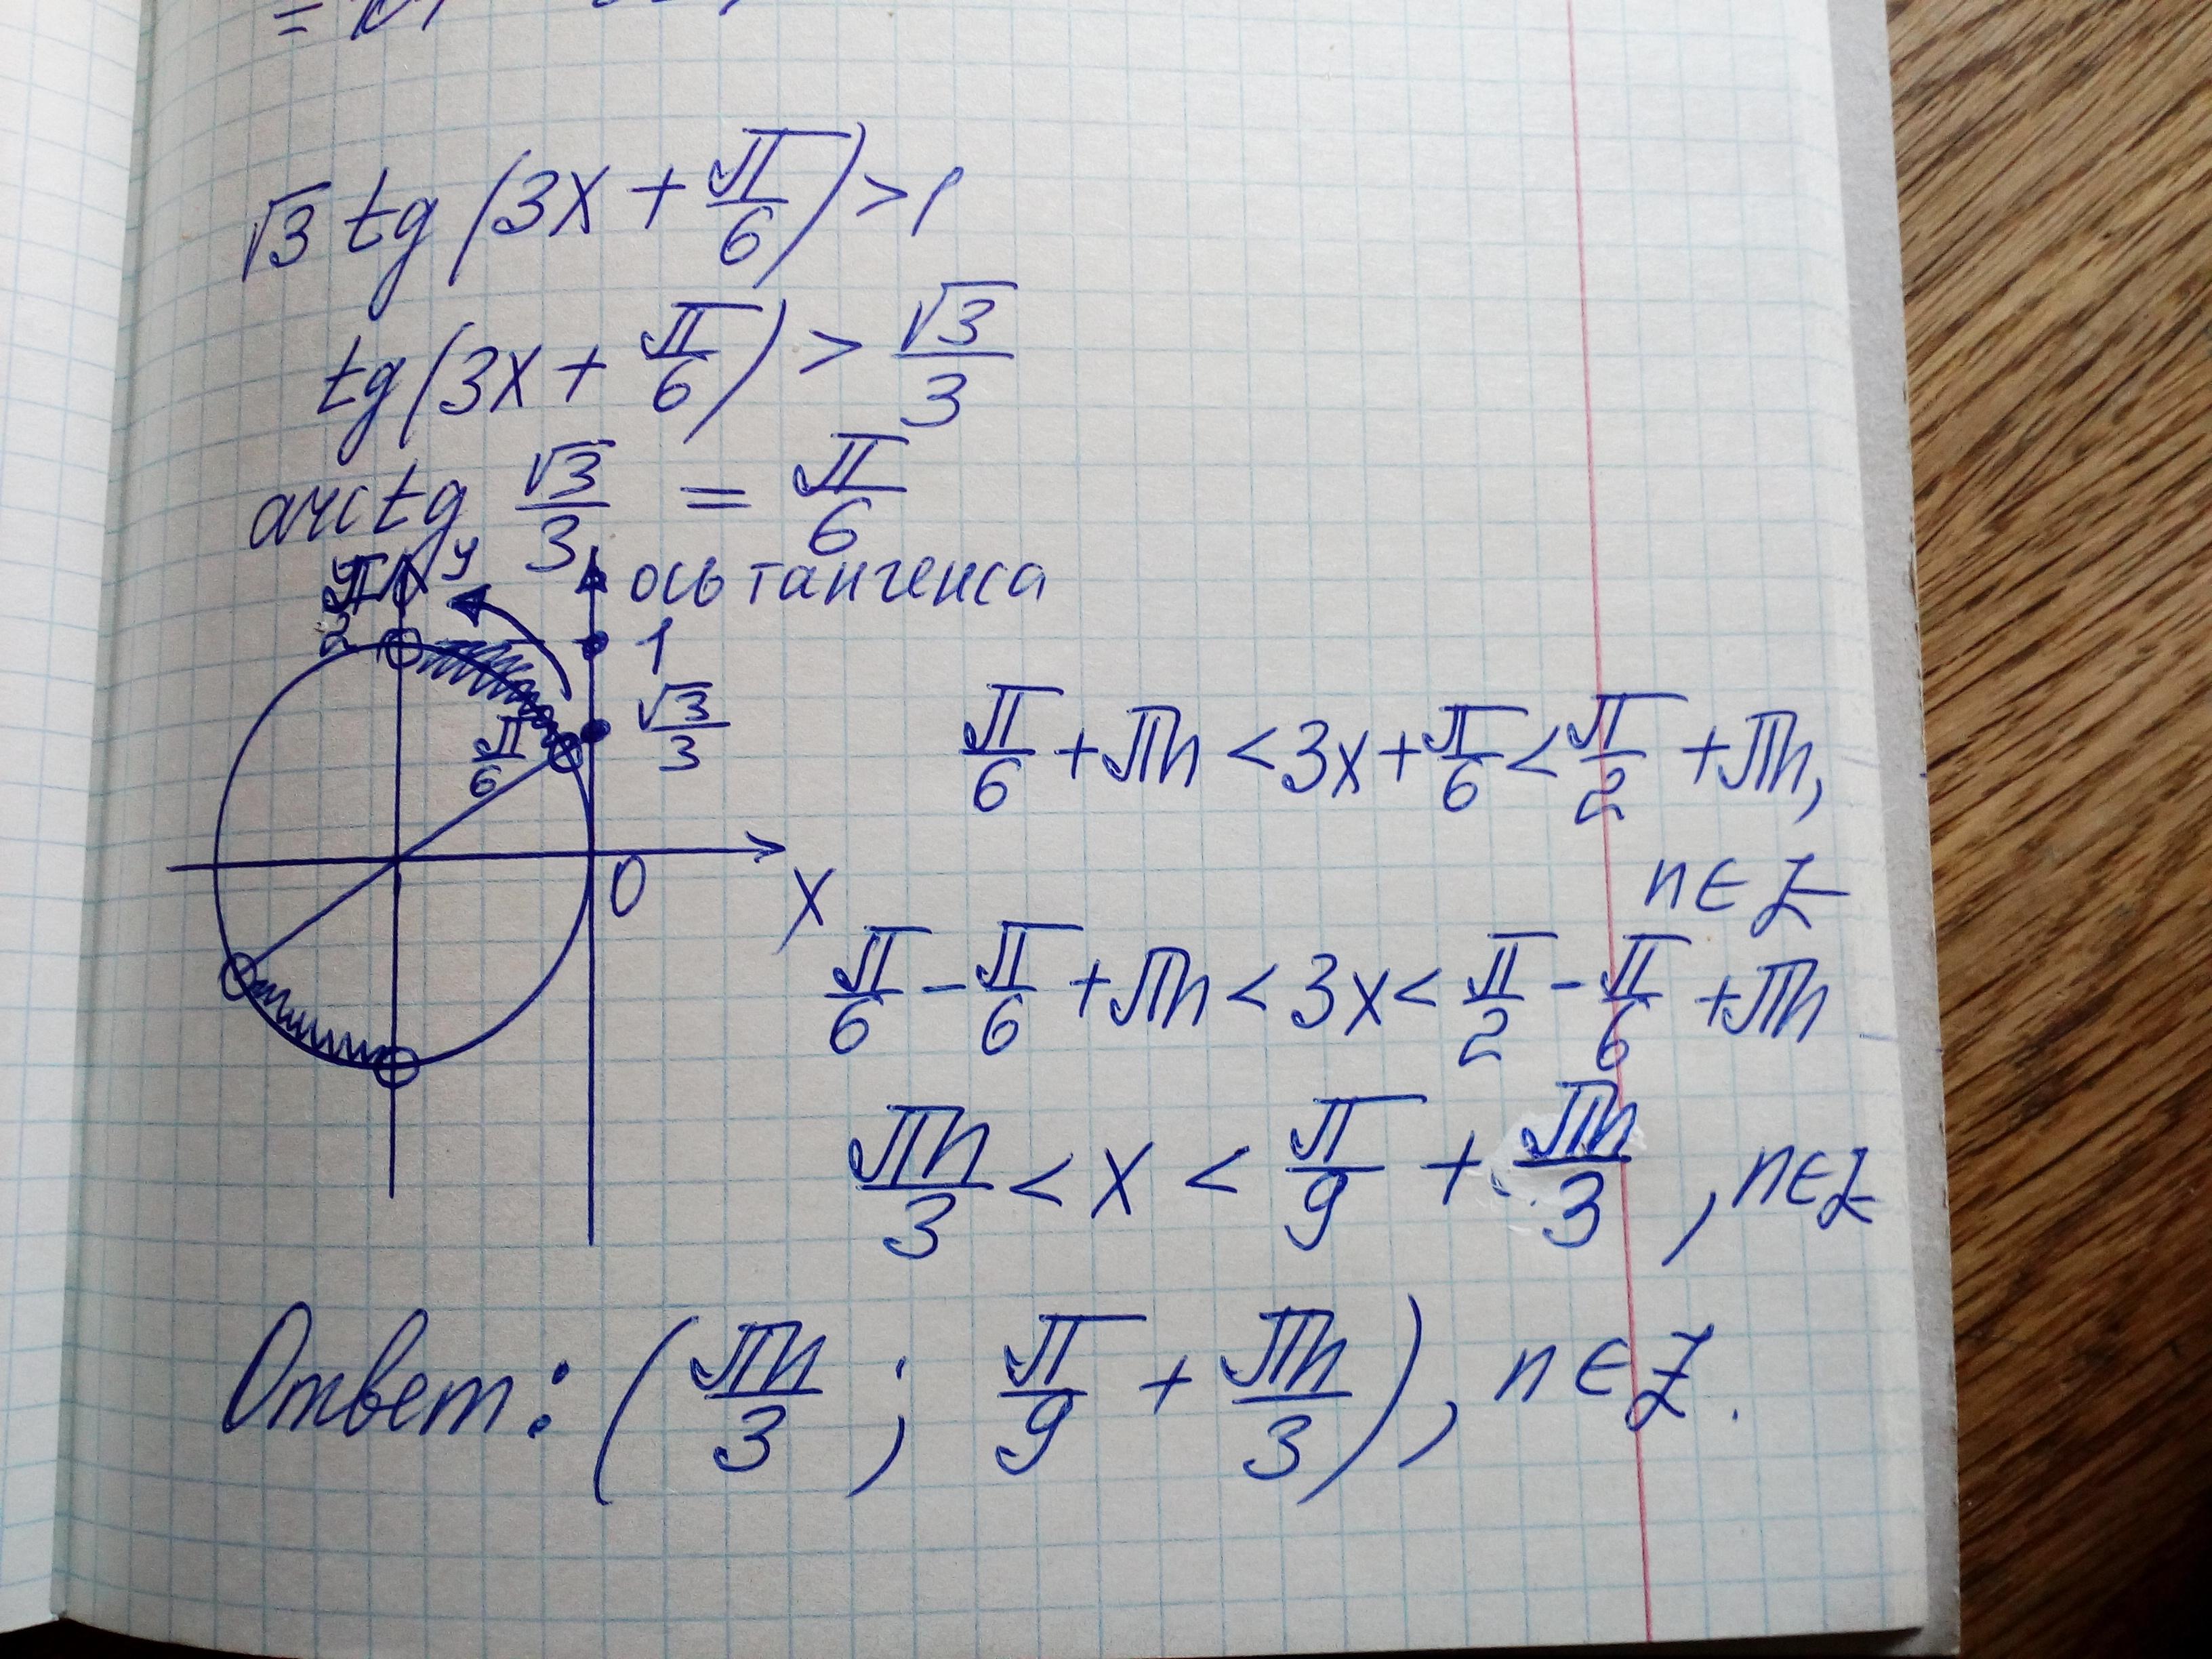 √3 tg (3x + π/6) > 1
tg (3x + π/6) > √3/3
arctg √3/3 = π/6
π/2
y
ось тангенса
1
√3/3
π/6
0
x
π/6 + πn < 3x + π/6 < π/2 + πn,
n ∈ Z
π/6 - π/6 + πn < 3x < π/2 - π/6 + πn
πn/3 < x < π/9 + πn/3, n ∈ Z
Ответ: (πn/3; π/9 + πn/3), n ∈ Z.